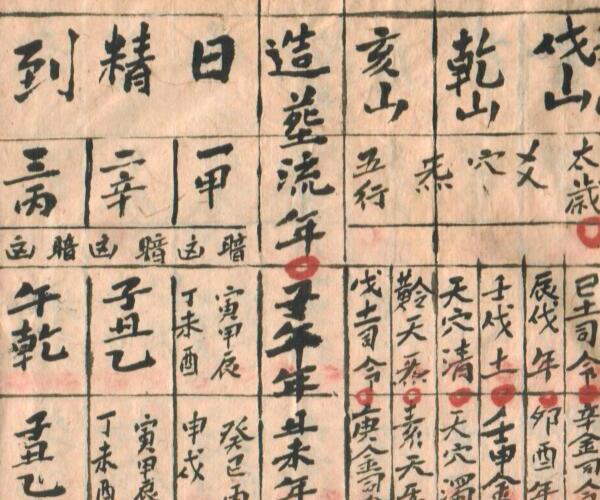 伐山
乾山
亥山
造葬流年
日精到
太歲
五行
穴
一甲
二辛
三丙
暗
暗
暗
巳土司令
辰伐年
壬伐土
天穴清
天
戊土司令
子午年
寅甲辰
丁未酉
子丑乙
午乾
辛金司令
卯酉年
壬申金
天穴濁
天
庚金司
丑未年
癸巳
申戌
寅甲辰
丁未酉
子丑乙